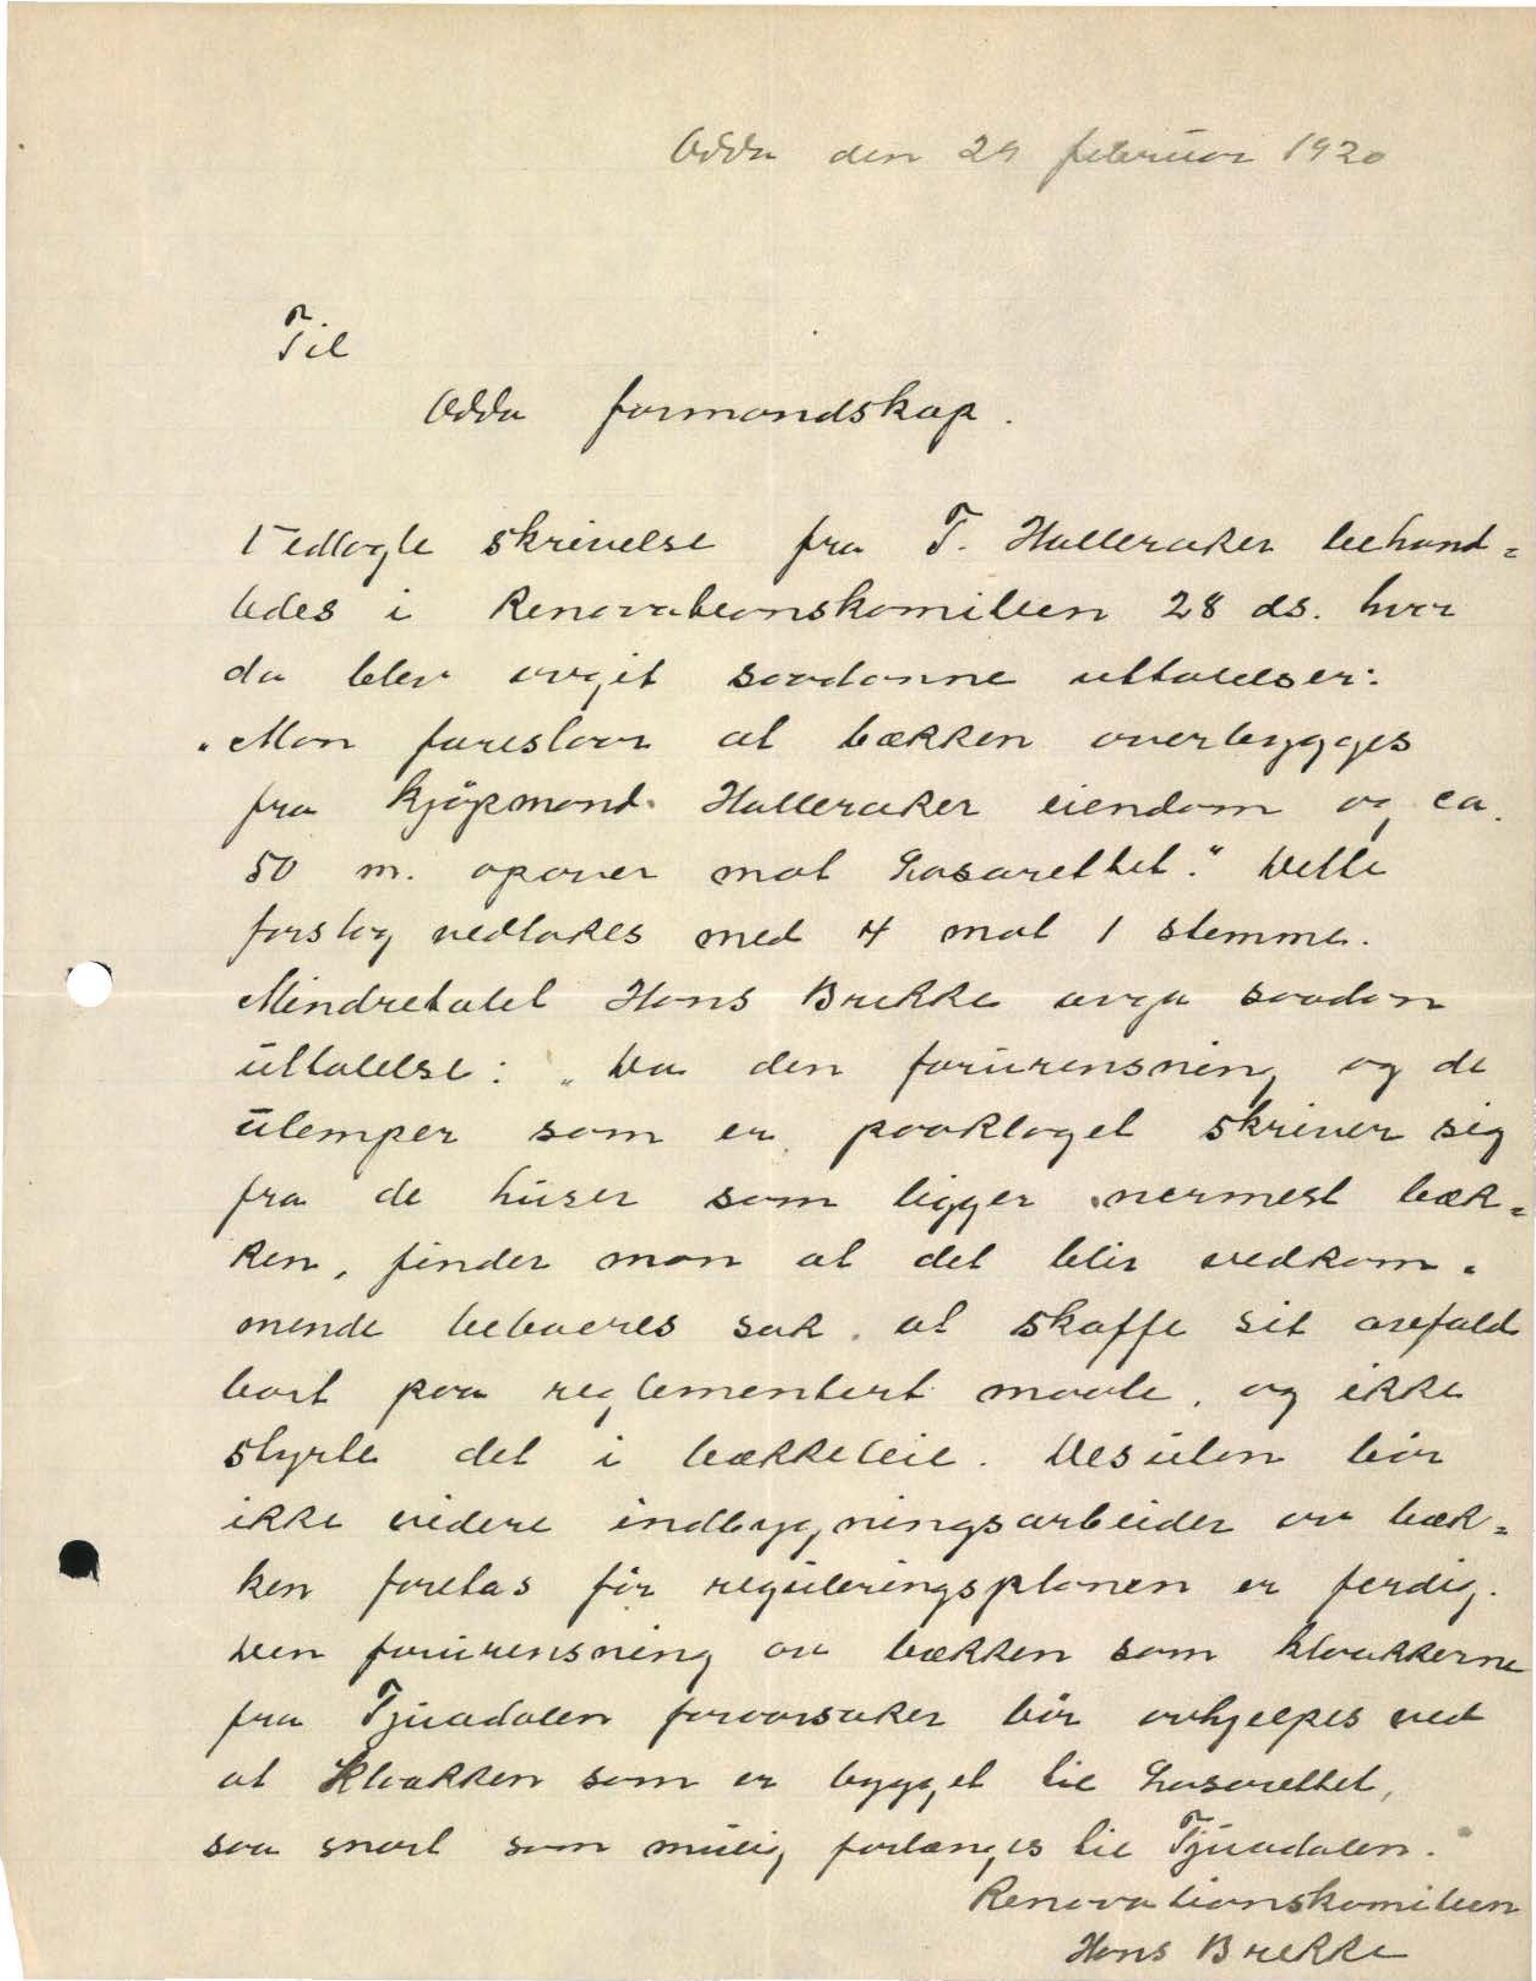 Odda den 29 februar 1920
Til
Odda formandskap.
Vedlagte skrivelse fra T. Halleraker behand=
ledes i Renovationskomiteen 28 ds. hvor
da blev avgit saadanne uttalelser:
"Man foreslaar at bækken overbygges
fra kjöpmand Halleraker eiendom og ca.
50 m. opover mot Lasarettet." Dette
forslag vedtokes med 4 mot 1 stemme.
Mindretalet Hans Brekke avga saadan
uttalelse: "Da den forurensning og de
ulemper som er paaklaget skriver sig
fra de huser som ligger nermest bæk=
ken, finder man at det blir vedkom=
mende beboeres sak at skaffe sit avfald
bort paa reglementert maate, og ikke
styrte det i bækkeleie. Desuten bör
ikke videre indbygningsarbeider av bæk=
ken foretas för reguleringsplanen er ferdig.
Den forurensning av bækken som kloakkerne
fra Tjuadalen foraarsaker bör avhjelpes ved
at Kloakken som er bygget til Lasarettet,
saa snart som mulig forlænges til Tjuadalen.
Renovationskomiteen
Hans Brekke